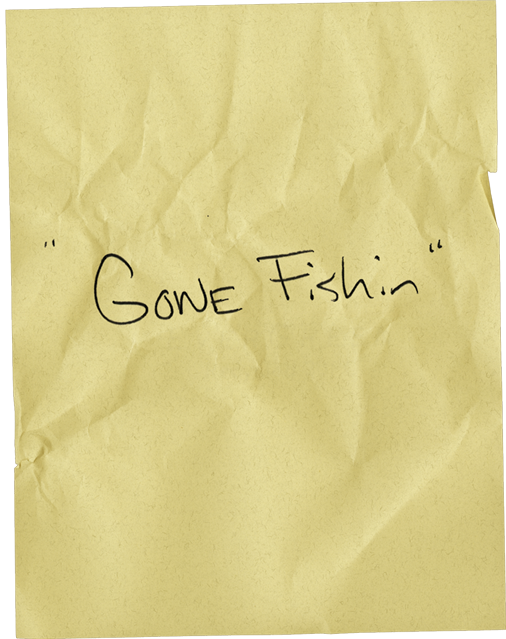 "Gone Fishin"